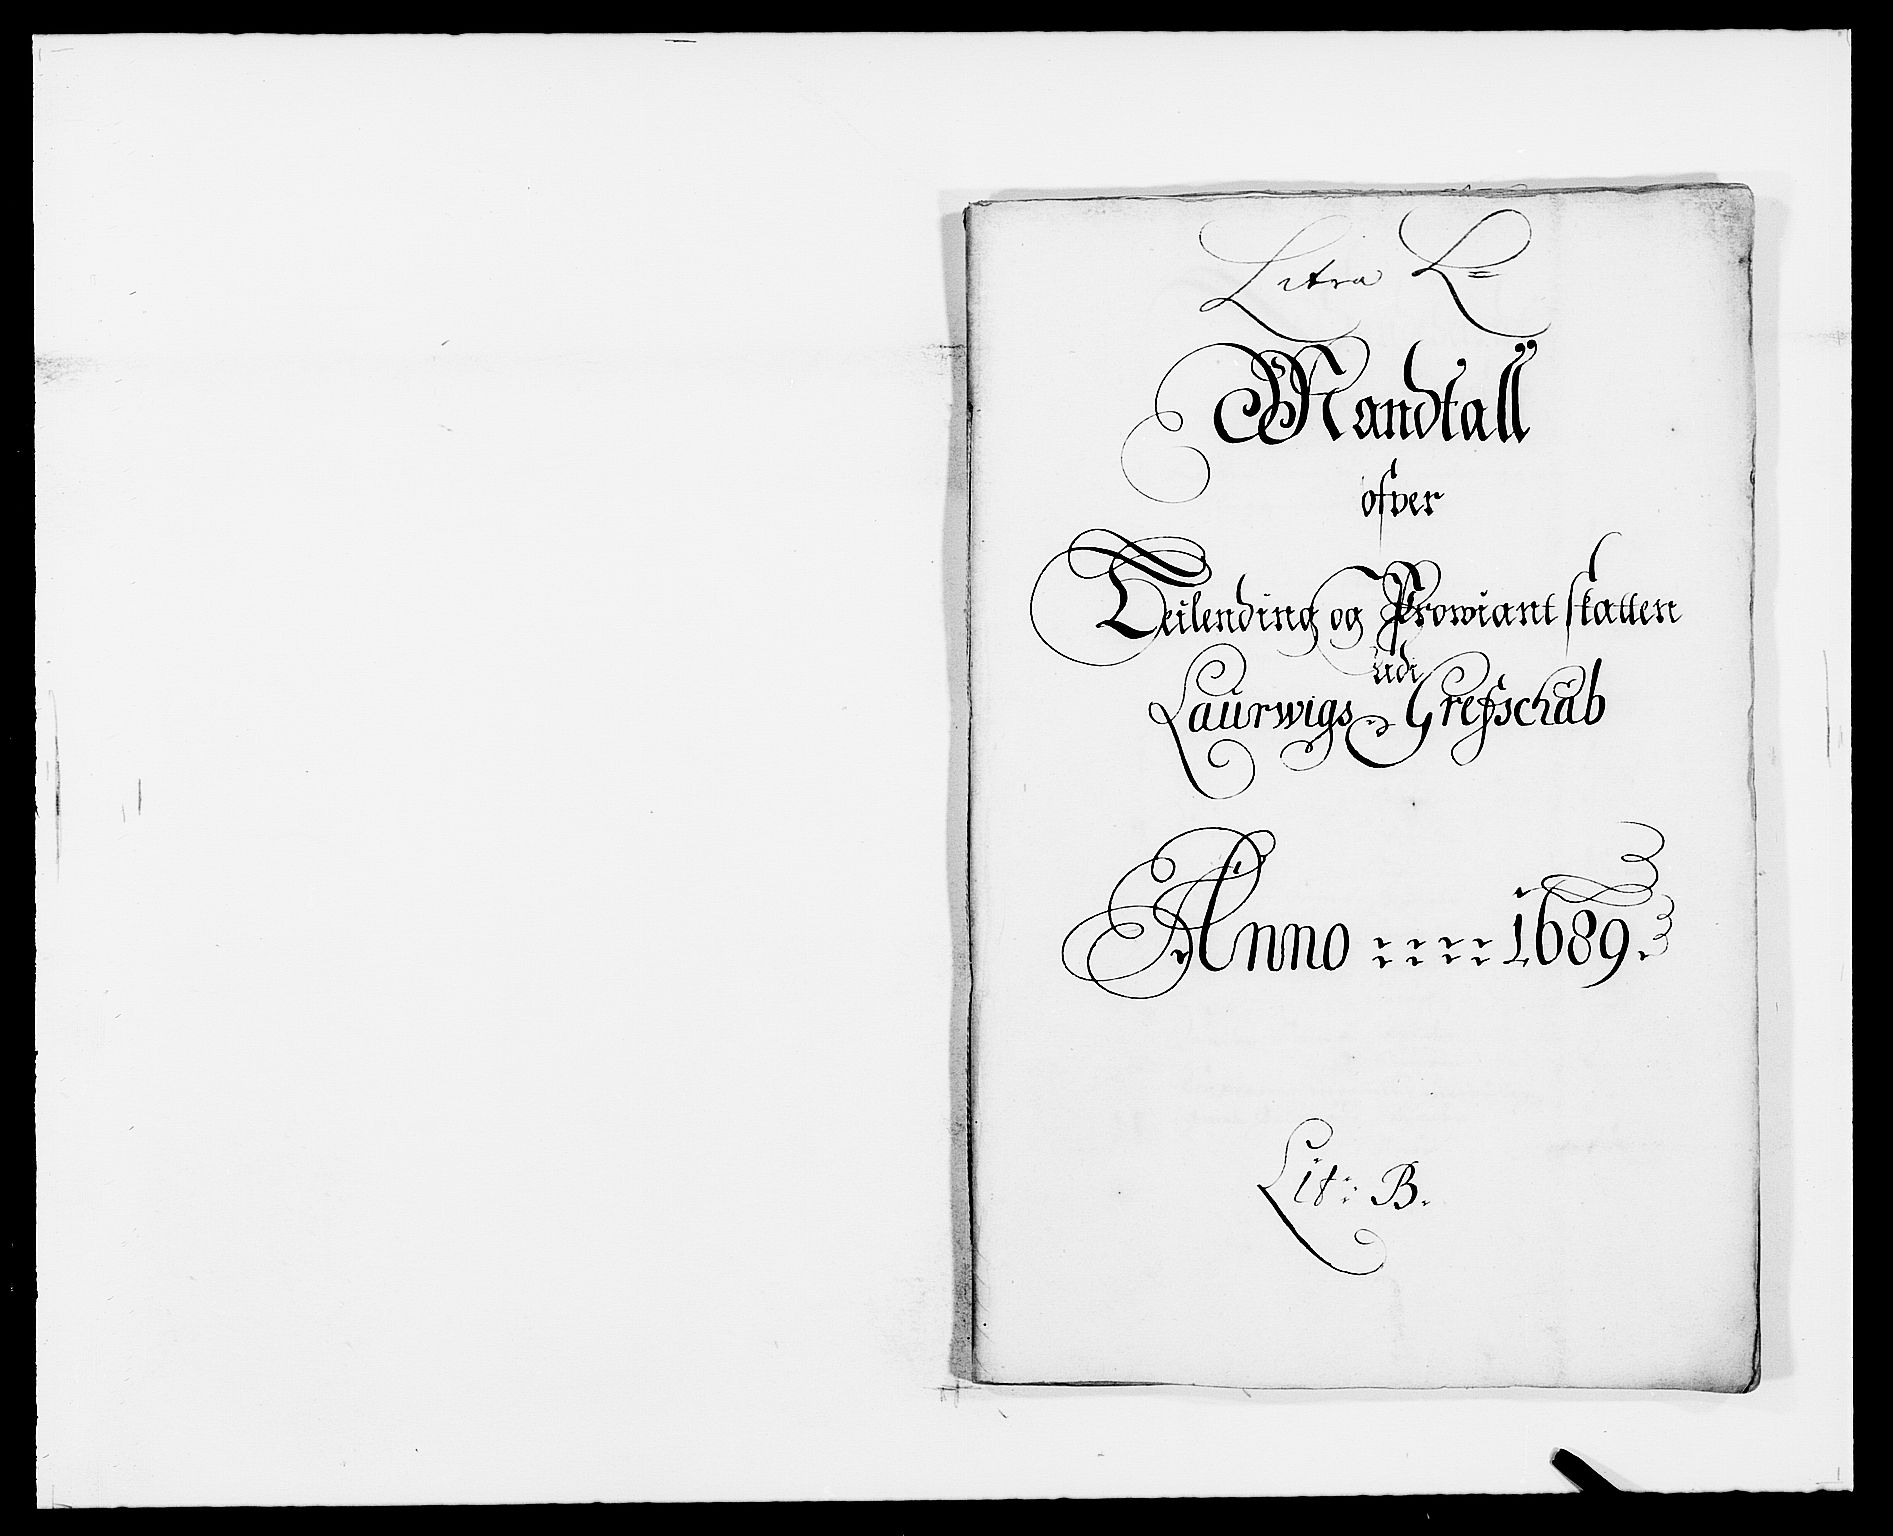 Litra L=
Mandtall
ofver
Leilending og Prowiant skatten
udi
Laurwigs Grefschab
Anno :::: 1689.
Lit: B.